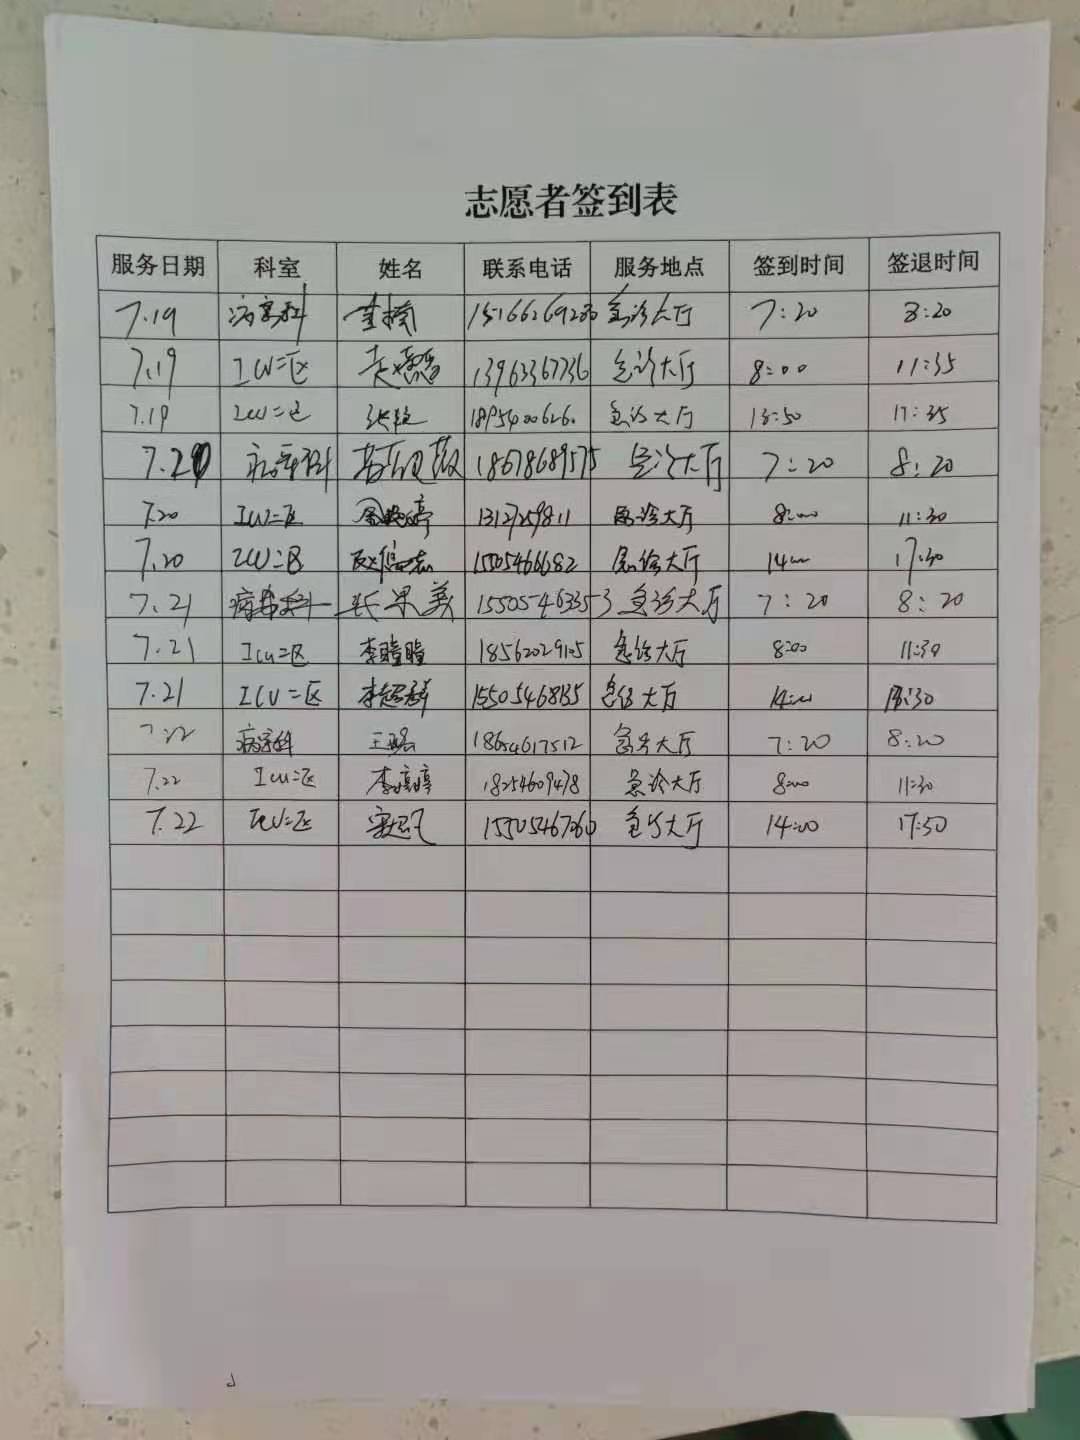 志愿者签到表
服务日期 科室 姓名 联系电话 服务地点 签到时间 签退时间
7.19 病案科 董楠 急诊大厅 7:20 8:20
7.19 ICU二区 13963367736 急诊大厅 8:00 11:35
7.19 ICU二区 18954006260 急诊大厅 13:50 17:35
7.20 病案科 18678689575 急诊大厅 7:20 8:20
7.20 ICU二区 13127259811 急诊大厅 8:00 11:30
7.20 ICU二区 15505466682 急诊大厅 14:00 17:30
7.21 病案科 张果美 15505463353 急诊大厅 7:20 8:20
7.21 ICU二区 李瞳瞳 18562029105 急诊大厅 8:00 11:30
7.21 ICU二区 李超群 15505468135 急诊大厅 14:00 17:30
7.22 病案科 王璐 18654617512 急诊大厅 7:20 8:20
7.22 ICU二区 李婷婷 18254609478 急诊大厅 8:00 11:30
7.22 ICU二区 急诊大厅 14:00 17:30